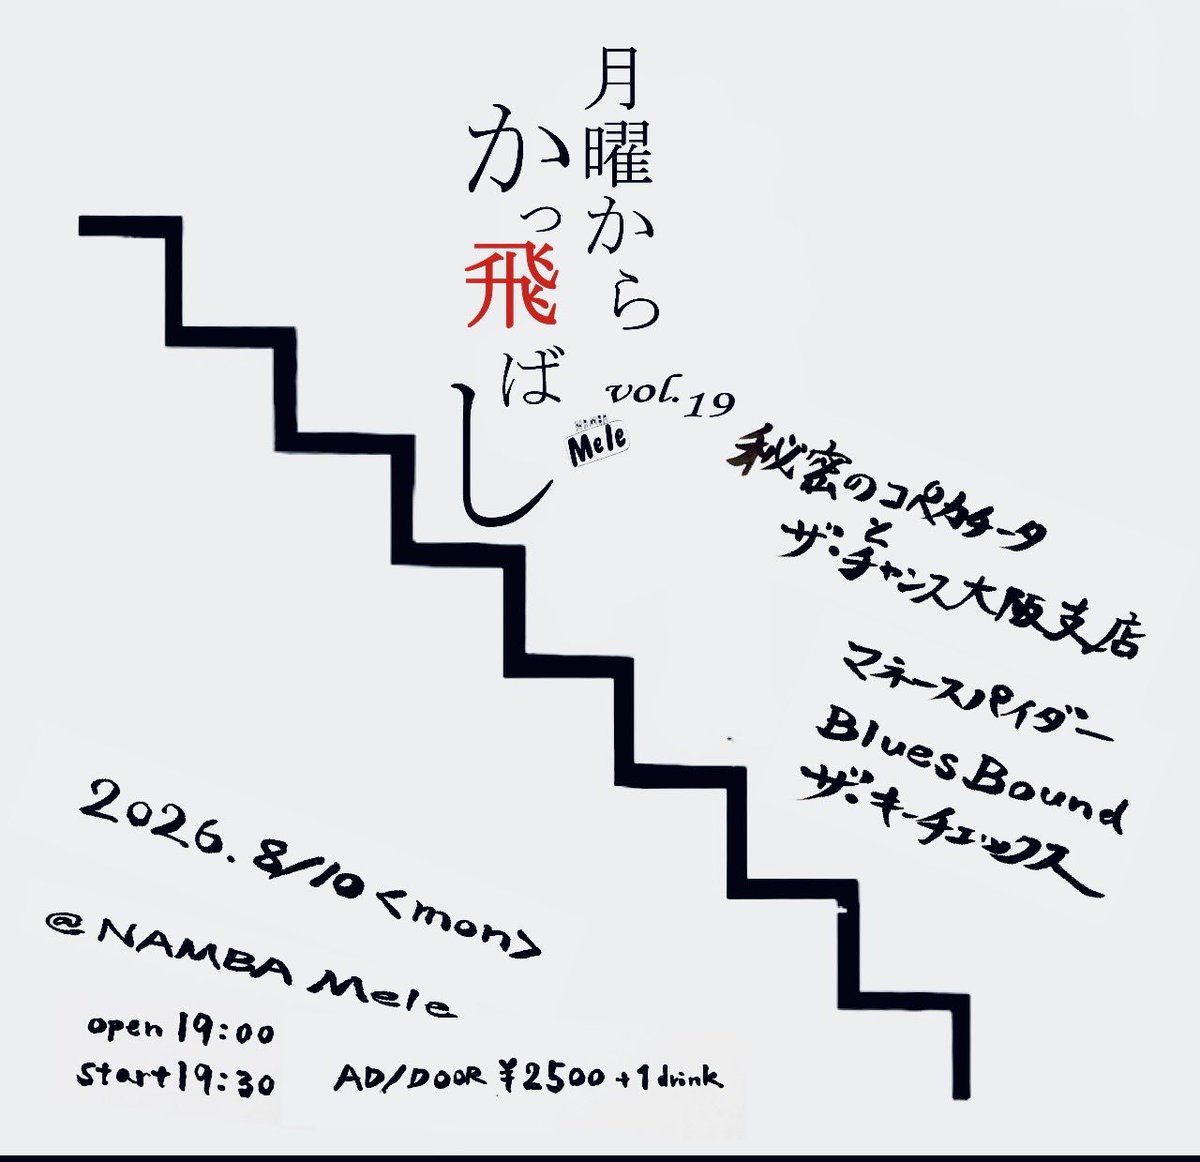 月曜から
かっ飛ばし
vol.19
Mele
秘密のコペカチータ
と
ザ・チャンス大阪支店
マネースパイダー
Blues Bound
ザ・キーチェックス
2026.8/10<mon>
@NAMBA Mele
open 19:00
start 19:30
AD/DOOR ¥2500+1drink